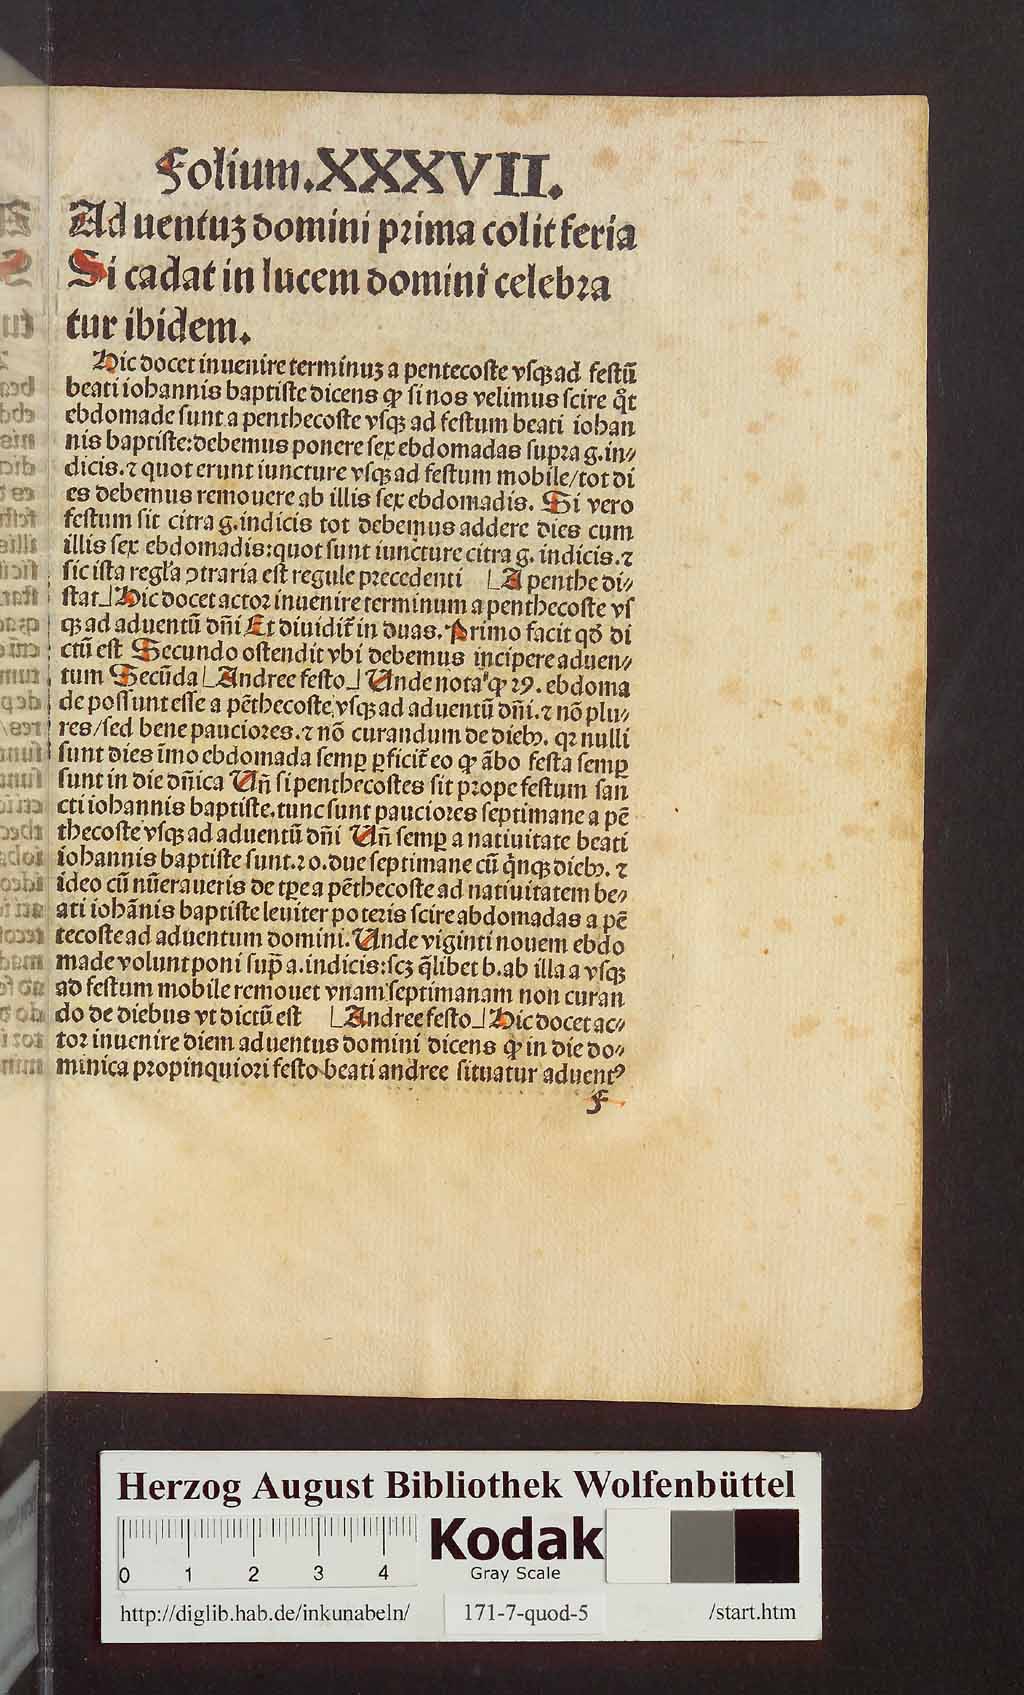 Folium.XXXVII.
Ad uentuꝫ domini prima colit feria
Si cadat in lucem domini celebra
tur ibidem.
Hic docet inuenire terminuꝫ a pentecoste vsqꝫ ad festū
beati iohannis baptiste dicens ꝙ si nos velimus scire qͦt
ebdomade sunt a penthecoste vsqꝫ ad festum beati iohan
nis baptiste: debemus ponere sex ebdomadas supra g. in⸗
dicis. ⁊ quot erunt iuncture vsqꝫ ad festum mobile/ tot di
es debemus remouere ab illis sex ebdomadis. Si vero
festum sit citra g. indicis tot debemus addere dies cum
illis sex ebdomadis: quot sunt iuncture citra g. indicis. ⁊
sic ista regl'a ↄtraria est regule precedenti ⌊A penthe di⸗
stat⌋ Hic docet actor inuenire terminum a penthecoste vs
qꝫ ad aduentū dn̄i Et diuidit͛ in duas. Primo facit qd̕ di
ctū est Secundo ostendit vbi debemus incipere aduen⸗
tum Secūda ⌊Andree festo⌋ Unde nota ꝙ 29. ebdoma
de possunt esse a pēthecoste vsqꝫ ad aduentū dn̄i. ⁊ nō plu⸗
res/ sed bene pauciores. ⁊ nō curandum de diebꝫ. qꝛ nulli
sunt dies īmo ebdomada semꝑ ꝑficit͛ eo ꝙ ābo festa semꝑ
sunt in die dn̄ica Un̄ si penthecostes sit prope festum san
cti iohannis baptiste. tunc sunt pauciores septimane a pē
thecoste vsqꝫ ad aduentū dn̄i Un̄ semꝑ a natiuitate beati
iohannis baptiste sunt. 20. due septimane cū qͥnqꝫ diebꝫ. ⁊
ideo cū nūeraueris de tꝑe a pēthecoste ad natiuitatem be⸗
ati iohānis baptiste leuiter poteris scire abdomadas a pē
tecoste ad aduentum domini. Unde viginti nouem ebdo
made volunt poni sup̄ a. indicis: scꝫ q̄libet b. ab illa a vsqꝫ
ad festum mobile remouet vnam septimanam non curan
do de diebus vt dictū est ⌊Andree festo⌋ Hic docet ac⸗
tor inuenire diem aduentus domini dicens ꝙ in die do⸗
minica propinquiori festo beati andree situatur aduentꝰ
F
Herzog August Bibliothek Wolfenbüttel
0 1 2 3 4
Kodak
Gray Scale
http://diglib.hab.de/inkunabeln/ 171-7-quod-5 /start.htm